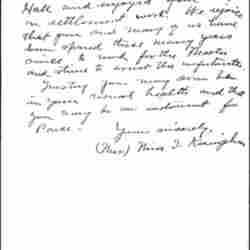 Hall and enjoyed your
in settlement work. We rejoice
that you and many of us have
been spared these many years
since to work for the Master
and strive to assist the unfortunate.
Trusting you may soon be
in your usual health and that
you may be an instrument for
Peace.
Yours sincerely,
(Mrs) Minn I.